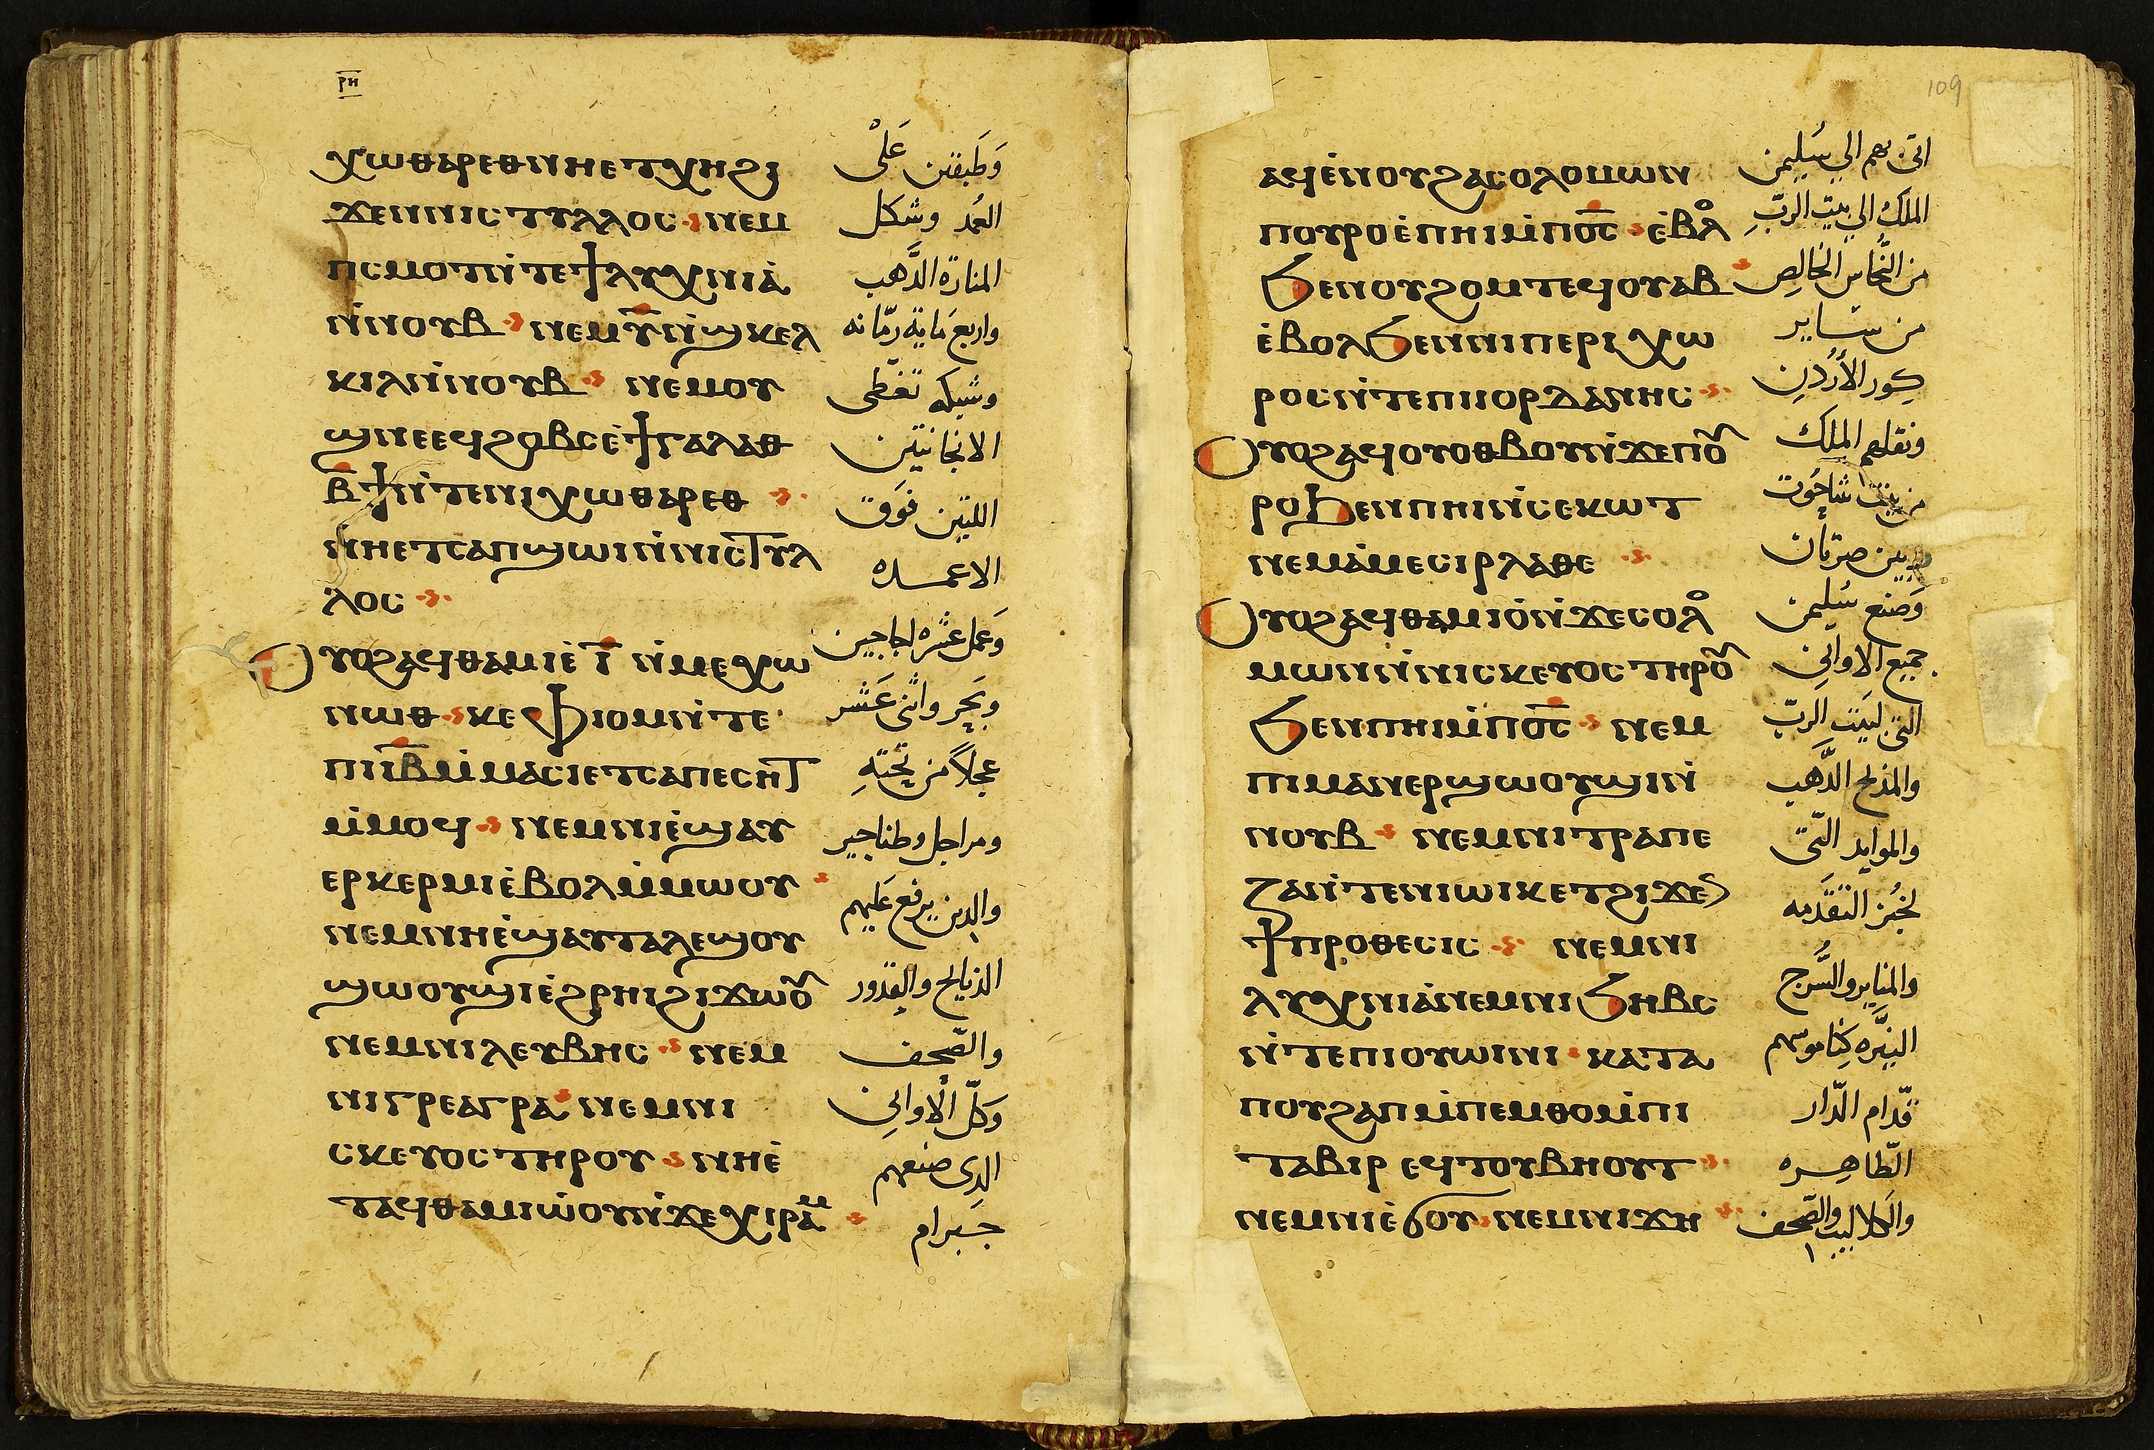 ⲣⲏ
ⲭⲱⲑⲁⲣⲉⲑ ⲛⲏⲉⲧⲭⲏ ϩⲓ
ϫⲉⲛ ⲛⲓⲥⲧⲩⲗⲗⲟⲥ ⲛⲉⲙ
ⲡⲥⲙⲟⲧ ⲛ̀ⲧⲉ ϯⲗⲩⲭⲛⲓⲁ̀
ⲛ̀ⲛⲟⲩⲃ ⲛⲉⲙ ⲩ̅ ⲛ̀ϣⲕⲉⲗ
ⲕⲓⲗ ⲛ̀ⲛⲟⲩⲃ ⲛⲉⲙ ⲟⲩ
ϣⲛⲉ ⲉϥϩⲱⲃⲥ ⲉ̀ϯⲅⲁⲗⲁⲑ
ⲃ̅ϯ ⲛ̀ⲧⲉ ⲛⲓⲭⲱⲑⲁⲣⲉⲑ
ⲛⲏⲉⲧⲥⲁⲡϣⲱⲓ ⲛ̀ⲛⲓⲥⲧⲩⲗ
ⲗⲟⲥ
Ⲟⲩⲟϩ ⲁϥⲑⲁⲙⲓⲉ̀ ⲓ̅ ⲙ̀ⲙⲉⲭⲱ
ⲛⲱⲑ ⲕⲉ ⲫⲓⲟⲙ ⲛ̀ⲧⲉ
ⲡⲓⲓ̅ⲃ̅ ⲙ̀ⲙⲁⲥⲓ ⲉⲧⲥⲁⲡⲉⲥⲏⲧ
ⲙ̀ⲙⲟϥ ⲛⲉⲙ ⲛⲓⲉ̀ϣⲁⲩ
ⲉⲣⲕⲉⲣⲙⲓ ⲉ̀ⲃⲟⲗ ⲙ̀ⲙⲱⲟⲩ
ⲛⲉⲙ ⲛⲏⲉ̀ϣⲁⲩⲧⲁⲗⲉ ϣⲟⲩ
ϣⲱⲟⲩϣⲓ ⲉ̀ϩⲣⲏⲓ ϩⲓϫⲱⲟⲩ
ⲛⲉⲙ ⲛⲓⲗⲉⲩⲃⲏⲥ ⲛⲉⲙ
ⲛⲓⲅⲣⲉⲁⲅⲣⲁ ⲛⲉⲙ ⲛⲓ
ⲥⲕⲉⲩⲟⲥ ⲧⲏⲣⲟⲩ ⲛⲏⲉ̀
ⲧⲁϥⲑⲁⲙⲓⲱ̀ⲟⲩ ⲛ̀ϫⲉ ⲭⲓⲣⲁⲙ
وَطَبقتين عَلَى
العُمد وشكل
المنارة الذَّهب
واربع مَاية رمّانه
وشبكه تغطى
الانجانيتين
اللتين فَوَق
الاعمده
وَعمل عشره لجاجين
وبَحر واثنى عَشر
عجلاً من تحَتهِ
ومراجل وطناجير
والدين يرفع عَليهم
الذبايح والقدور
والصّحف
وَكلّ الاوانِى
الدى صنعهم
جَبرام
109
ⲁϥⲉ̀ⲛⲟⲩ ϩⲁ ⲥⲟⲗⲟⲙⲱⲛ
ⲡⲟⲩⲣⲟ ⲉ̀ⲡⲏⲓ ⲙ̀ⲡⲟ̅ⲥ̅ ⲉ̀ⲃⲟⲗ
ϧⲉⲛ ⲟⲩϩⲟⲙⲧ ⲉϥⲟⲩⲁⲃ
ⲉ̀ⲃⲟⲗ ϧⲉⲛ ⲛⲓⲡⲉⲣⲓⲭⲱ
ⲣⲟⲥ ⲛ̀ⲧⲉ ⲡⲓⲓⲟⲣⲇⲁⲛⲏⲥ
Ⲟⲩⲟϩ ⲁϥⲟⲩⲟⲑⲃⲟⲩ ⲛ̀ϫⲉ ⲡⲟⲩ
ⲣⲟ ϧⲉⲛ ⲡⲏⲓ ⲛ̀ⲥⲉⲕⲱⲧ
ⲛⲉⲙ ⲁ̀ⲙⲉⲥⲓⲣⲗⲁⲑⲉ
Ⲟⲩⲟϩ ⲁϥⲑⲁⲙⲓⲟ̀ ⲛ̀ϫⲉ ⲥⲟⲗⲟ
ⲙⲱⲛ ⲛ̀ⲛⲓⲥⲕⲉⲩⲟⲥ ⲧⲏⲣⲟⲩ
ϧⲉⲛ ⲡⲏⲓ ⲙ̀ⲡⲟ̅ⲥ̅ ⲛⲉⲙ
ⲡⲓⲙⲁⲛⲉⲣϣⲱⲟⲩϣⲓ ⲛ̀
ⲛⲟⲩⲃ ⲛⲉⲙ ⲛⲓⲧⲣⲁⲡⲉ
ⲍⲁ ⲛ̀ⲧⲉ ⲛⲓⲱⲓⲕ ⲉⲧϩⲓϫⲉⲛ
ϯⲡⲣⲟⲑⲉⲥⲓⲥ ⲛⲉⲙ ⲛⲓ
ⲗⲩⲭⲛⲓⲁ̀ ⲛⲉⲙ ⲛⲓϧⲏⲃⲥ
ⲛ̀ⲧⲉ ⲡⲓⲟⲩⲱⲓⲛⲓ ⲕⲁⲧⲁ
ⲡⲟⲩϩⲁⲡ ⲙ̀ⲡⲉⲙⲑⲟ ⲙ̀ⲡⲓ
ⲧⲁⲃⲓⲣ ⲉϥⲧⲟⲩⲃⲏⲟⲩⲧ
ⲛⲉⲙ ⲛⲓⲉ̀ϭⲟⲩ ⲛⲉⲙ ⲛⲓϫⲏ
اتى بهم الى سُليمن
الملك الى بيت الربِّ
من النُّحاس الخالِص
من ساير
كور الأردُن
ونقلهم الملك
من بيت شاحوت
وبين صرتان
وَصنع سُليمن
جميع الاوانِى
التى لبَيت الربّ
والمذبح الذَّهب
والموايد التّى
لخُبز التقَدمه
والمناير والسُّرج
النيّره كناموسهم
قدّام الدّار
الطّاهِره
والكلاليب والصّحف